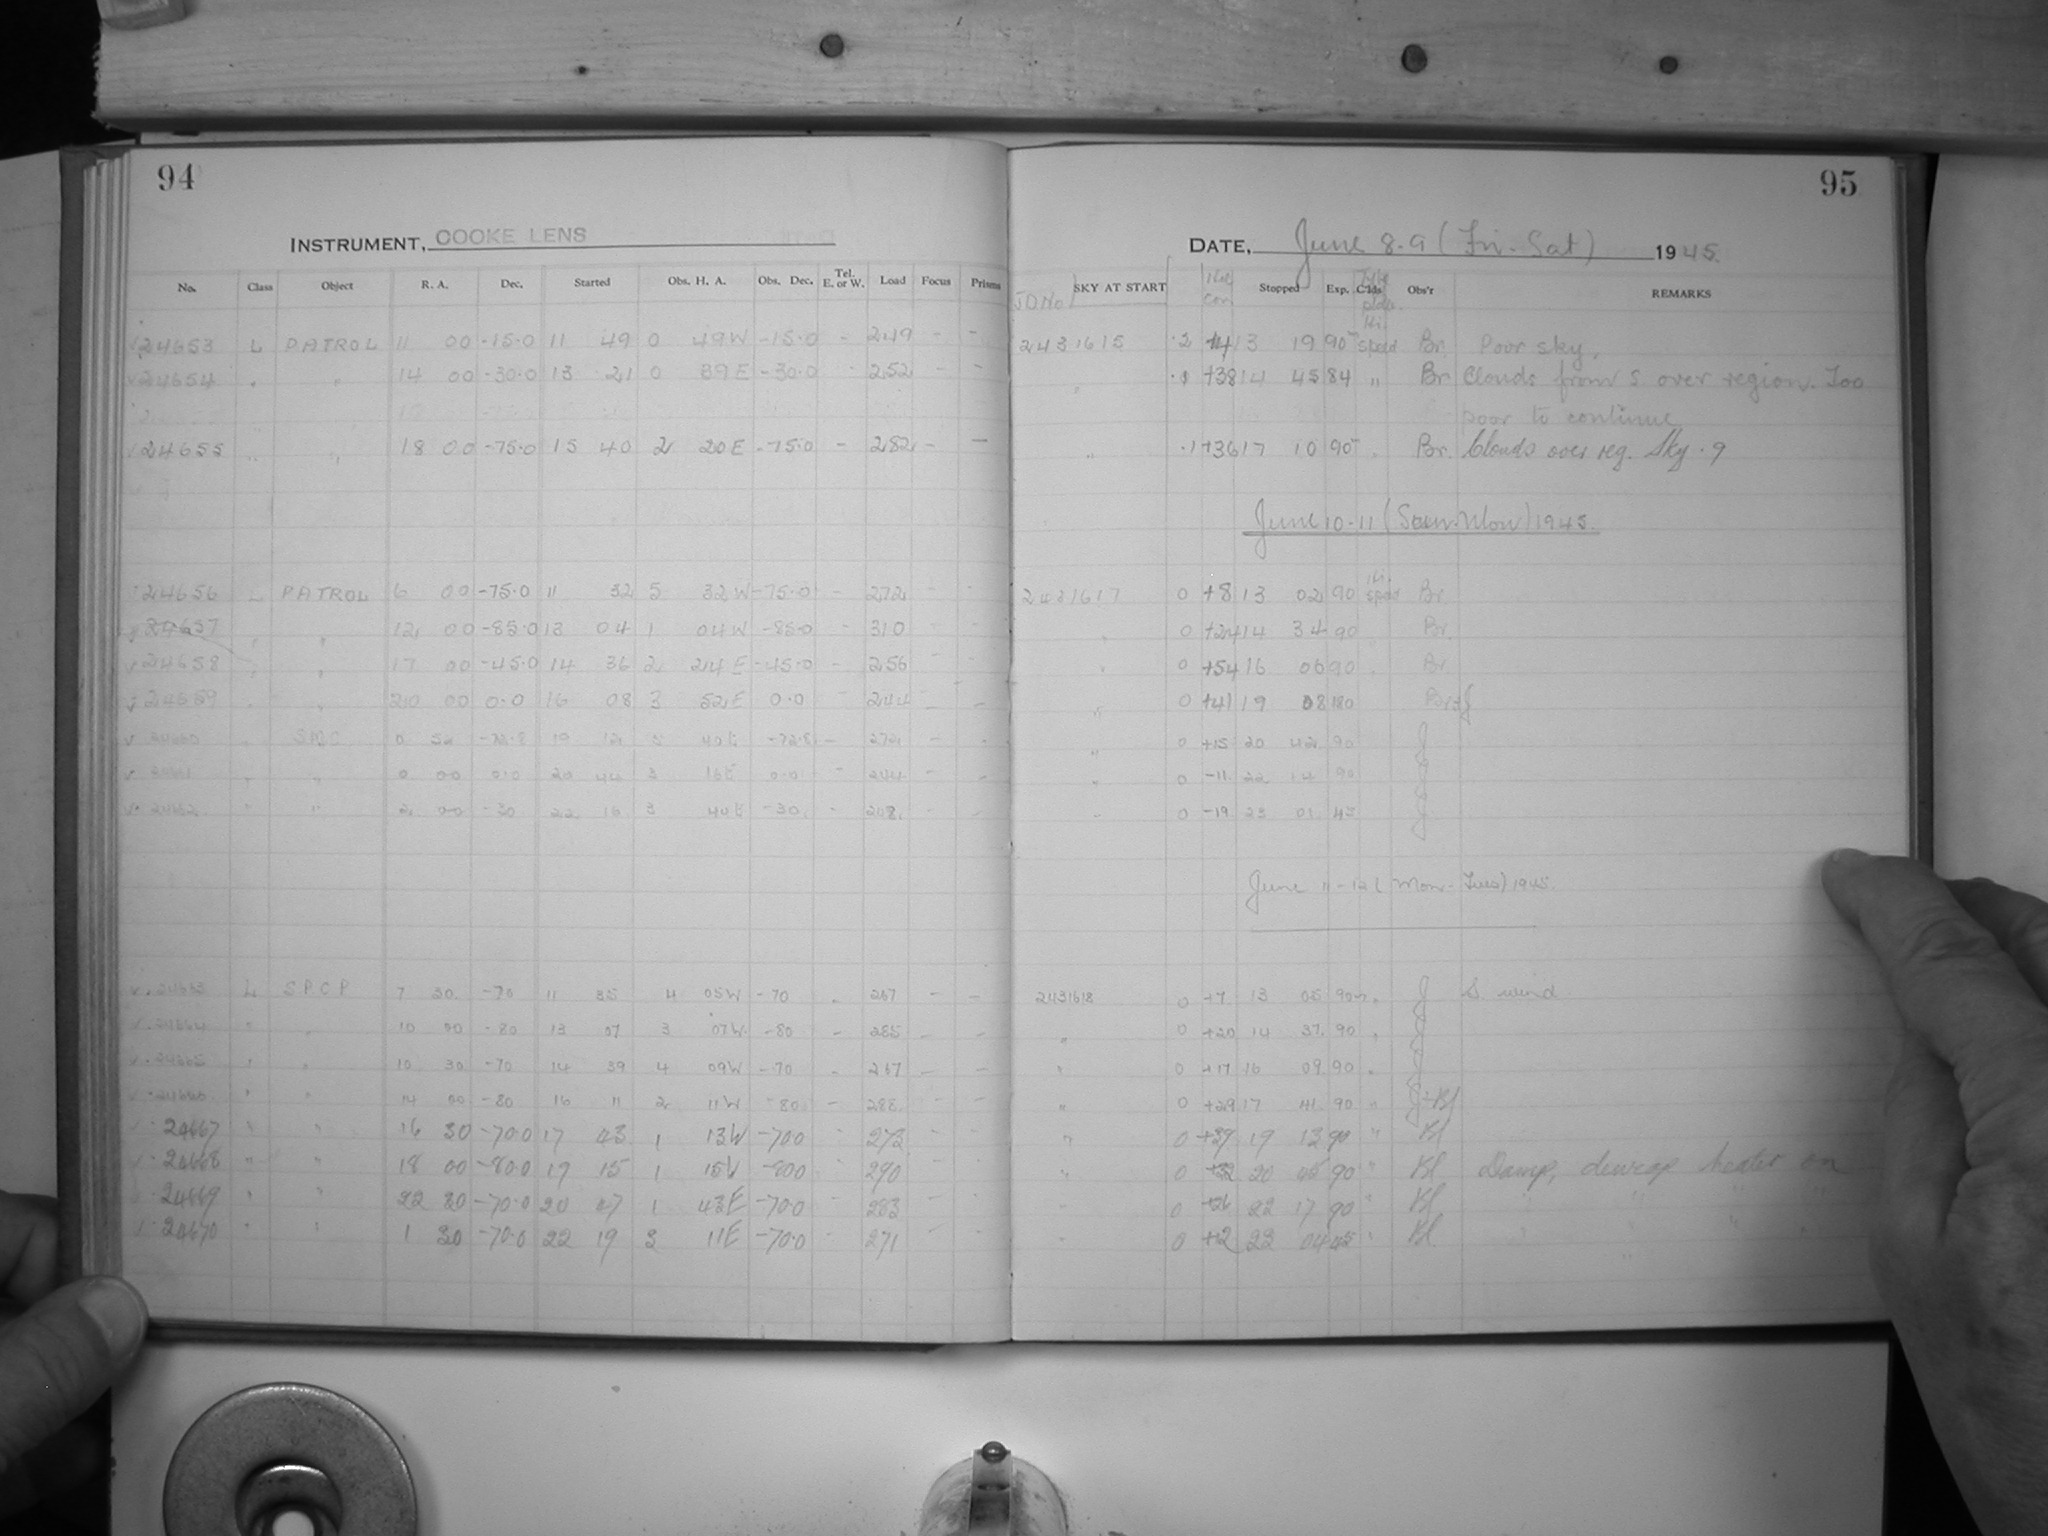 94
INSTRUMENT, COOKE LENS
No. Class Object R. A. Dec. Started Obs. H. A. Obs. Dec. Tel. E. or W. Load Focus Prisms
24653 L PATROL 11 00 -15.0 11 49 0 49W -15.0 - 249 - -
24654 " " 14 00 -30.0 13 21 0 39E -30.0 - 252 - -
24655 " " 18 00 -75.0 15 40 2 20E -75.0 - 282 - -
24656 L PATROL 6 00 -75.0 11 32 5 32W -75.0 - 272 - -
24657 " " 12 00 -85.0 13 04 1 04W -85.0 - 310 - -
24658 " " 17 00 -45.0 14 36 2 24E -45.0 - 256 - -
24659 " " 20 00 0.0 16 08 3 52E 0.0 - 244 - -
24660 " 0 52 -72.8 19 12 5 40E -72.8 - 272 - -
24661 " " 0 00 0.0 20 44 3 16E 0.0 - 244 - -
24662 " " 2 00 -30 22 16 3 40E -30. - 248 - -
24663 L S.P.C.P 7 30 -70 11 35 4 05W -70 - 267 - -
24664 " " 10 00 -80 13 07 3 07W -80 - 285 - -
24665 " " 10 30 -70 14 39 4 09W -70 - 267 - -
24666 " " 14 00 -80 16 11 2 11W -80 - 288 - -
24667 " " 16 30 -70.0 17 43 1 13W -70.0 - 273 - -
24668 " " 18 00 -80.0 19 15 1 15W -80.0 - 290 - -
24669 " " 22 30 -70.0 20 47 1 43E -70.0 - 283 - -
24670 " " 1 30 -70.0 22 19 3 11E -70.0 - 271 - -
95
DATE, June 8-9 (Fri-Sat) 1945.
JD No SKY AT START Stopped Exp. C'lds Obs'r REMARKS
2431615 .2 13 19 90 speed Br. Poor sky.
" +38 14 45 84 " Br Clouds from S. over region. Too
poor to continue
" .1 +36 17 10 90 " Br. Clouds over reg. Sky .9
June 10-11 (Sun-Mon) 1945.
2431617 0 +8 13 02 90 Hi. speed Br.
" 0 +24 14 34 90 Br.
" 0 +54 16 06 90 Br
" 0 +41 19 08 180 Br+J
" 0 +15 20 42 90 J
" 0 -11 22 14 90 J
" 0 -19 23 01 45 J
June 11-12 (Mon-Tues) 1945.
2431618 0 +7 13 05 90 " J S. wind
" 0 +20 14 37 90 " J
" 0 +17 16 09 90 " J
" 0 +29 17 41 90 " J+Bl
" 0 +39 19 13 90 " Bl
" 0 +32 20 45 90 " Bl Damp, dewcap heater on
" 0 +26 22 17 90 " Bl " " " "
" 0 +2 23 04 45 " Bl " " " "